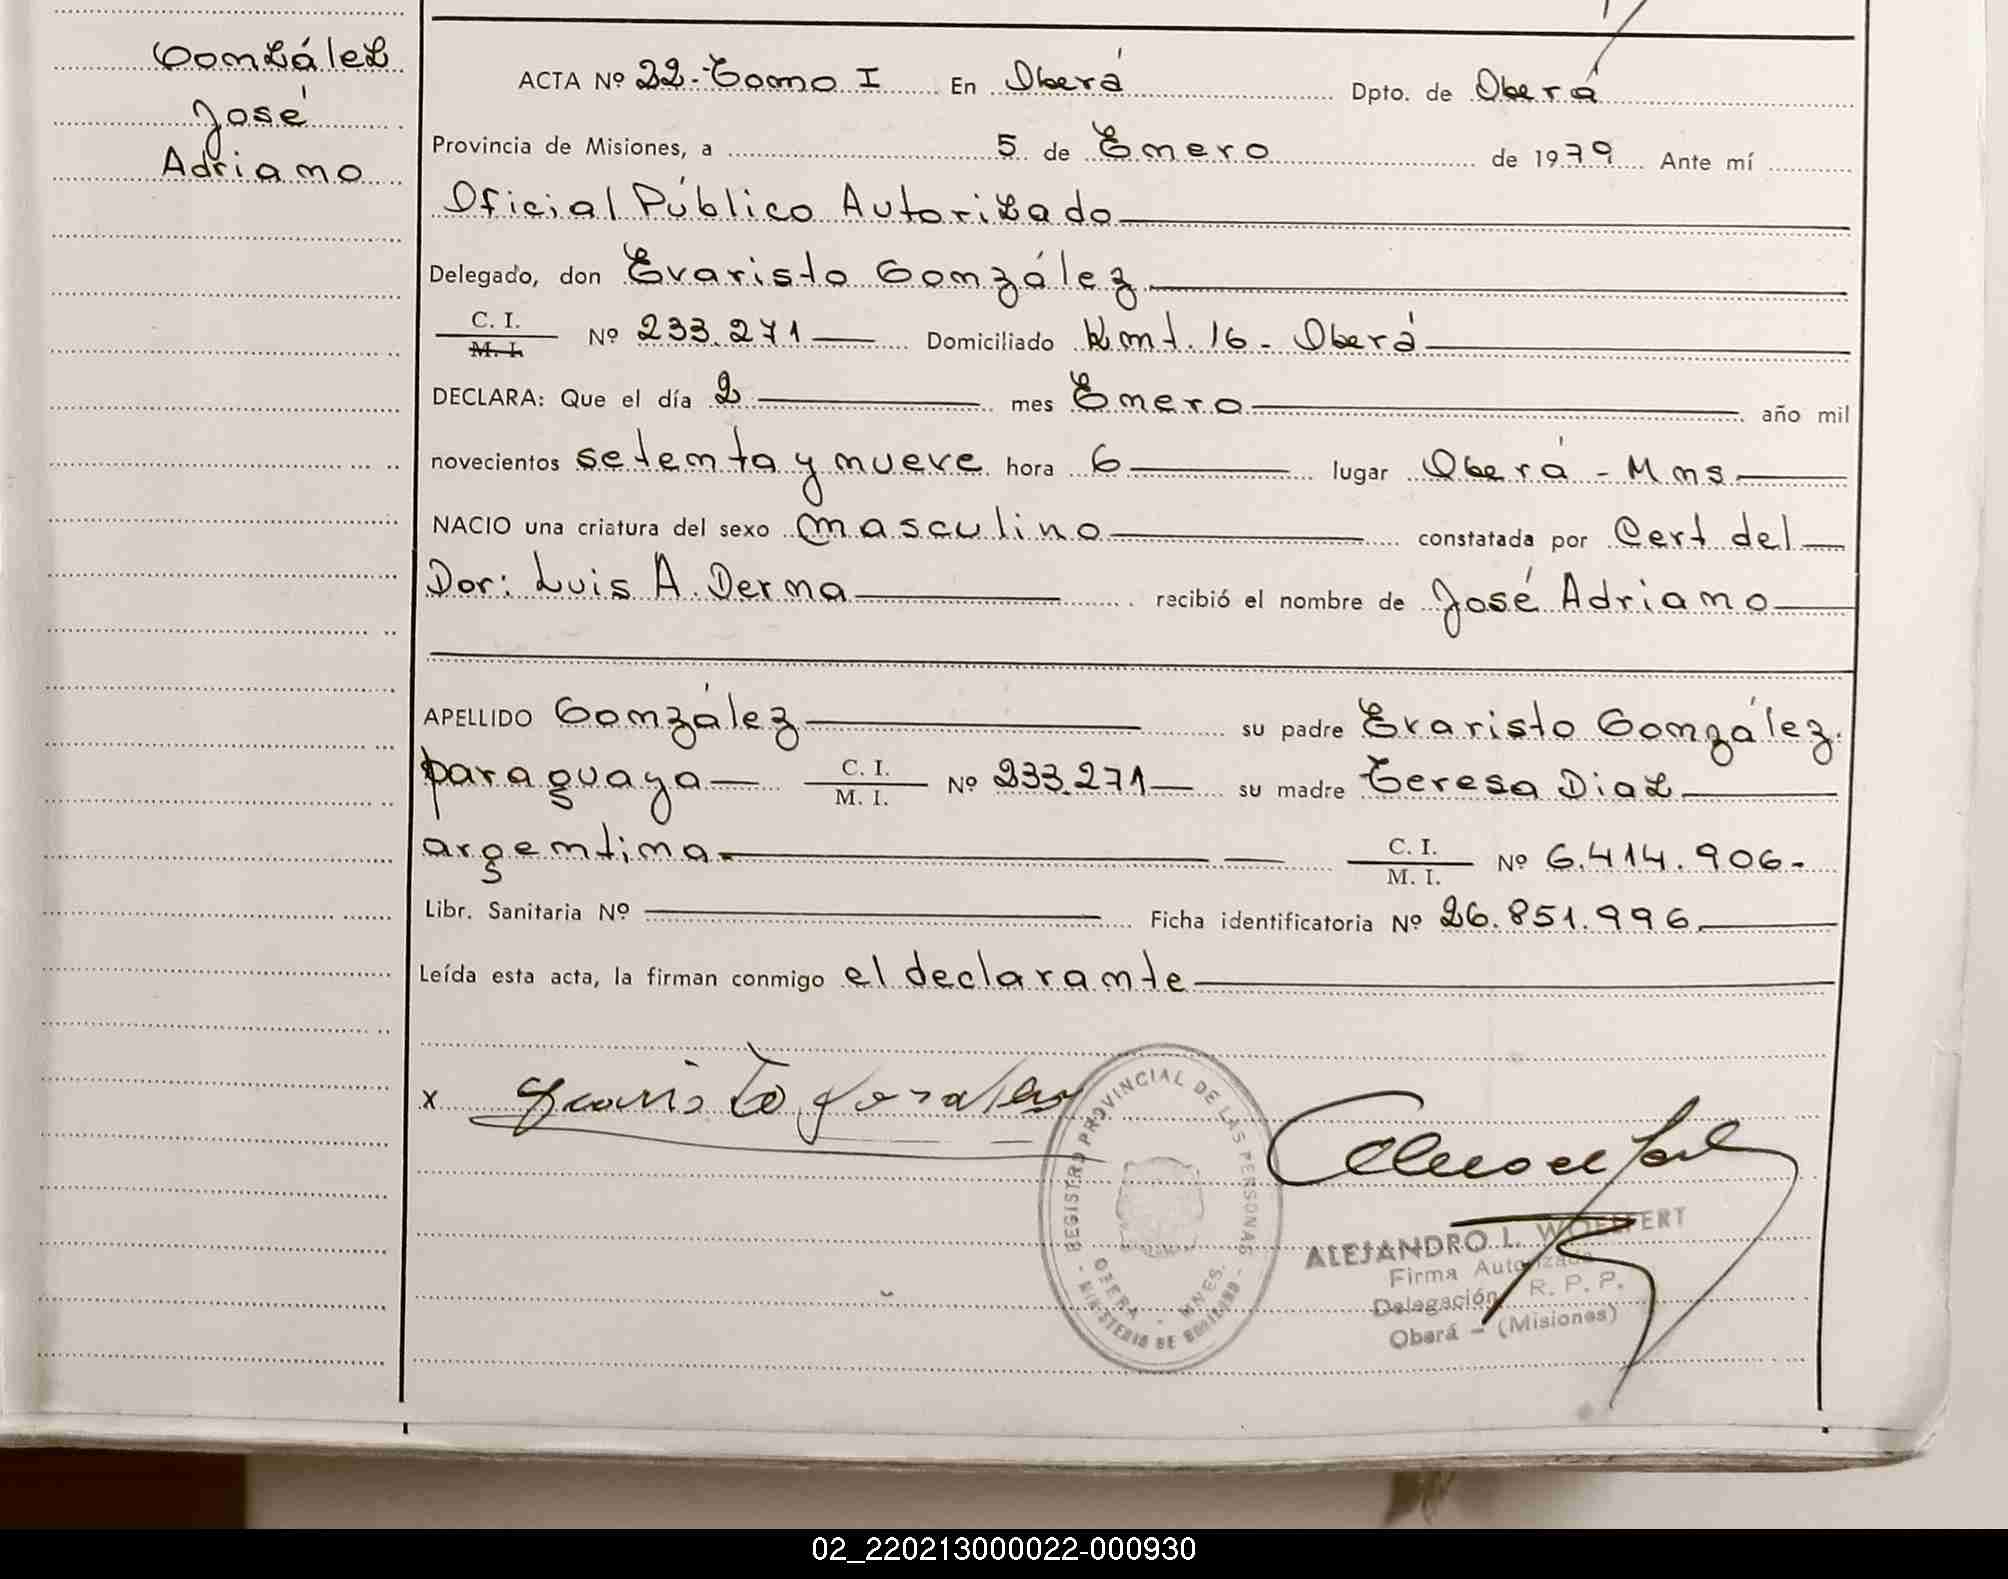 González
José
Adriano
ACTA Nº 22-Tomo I En Oberá Dpto. de Oberá
Provincia de Misiones, a 5 de Enero de 1979 Ante mí
Oficial Público Autorizado
Delegado, don Evaristo González
C. I.
M. I. Nº 233.271 Domiciliado Kmt. 16 - Oberá
DECLARA: Que el día 2 mes Enero año mil
novecientos setenta y nueve hora 6 lugar Oberá - Mns
NACIO una criatura del sexo masculino constatada por Cert del
Dor: Luis A. Derna recibió el nombre de José Adriano
APELLIDO González su padre Evaristo González.
paraguaya C. I. Nº 233.271 su madre Teresa Diaz
M. I.
argentina C. I. Nº 6.414.906-
M. I.
Libr. Sanitaria Nº Ficha identificatoria Nº 26.851.996
Leída esta acta, la firman conmigo el declarante
x Evaristo Gonzalez
REGISTRO PROVINCIAL DE LAS PERSONAS
OBERA - MNES.
MINISTERIO DE GOBIERNO
ALEJANDRO L. WOEFFERT
Firma Autorizada
Delegación R. P. P.
Oberá - (Misiones)
02_220213000022-000930